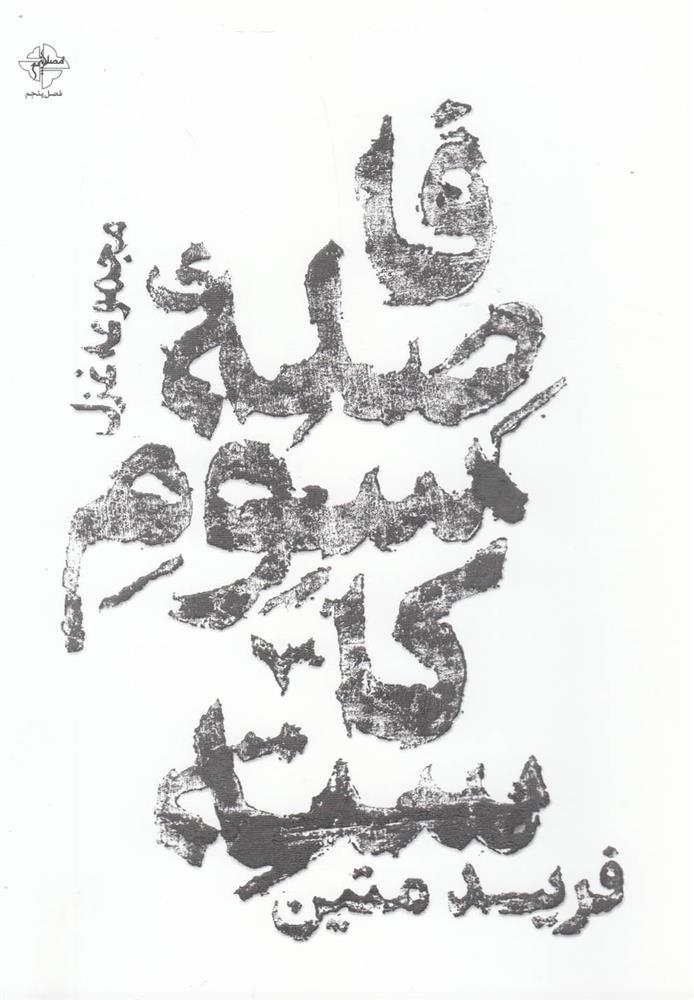 فصل پنجم
مجموعه غزل
فا
صلهٔ
سوِمِ
کا
سته
فرید متین